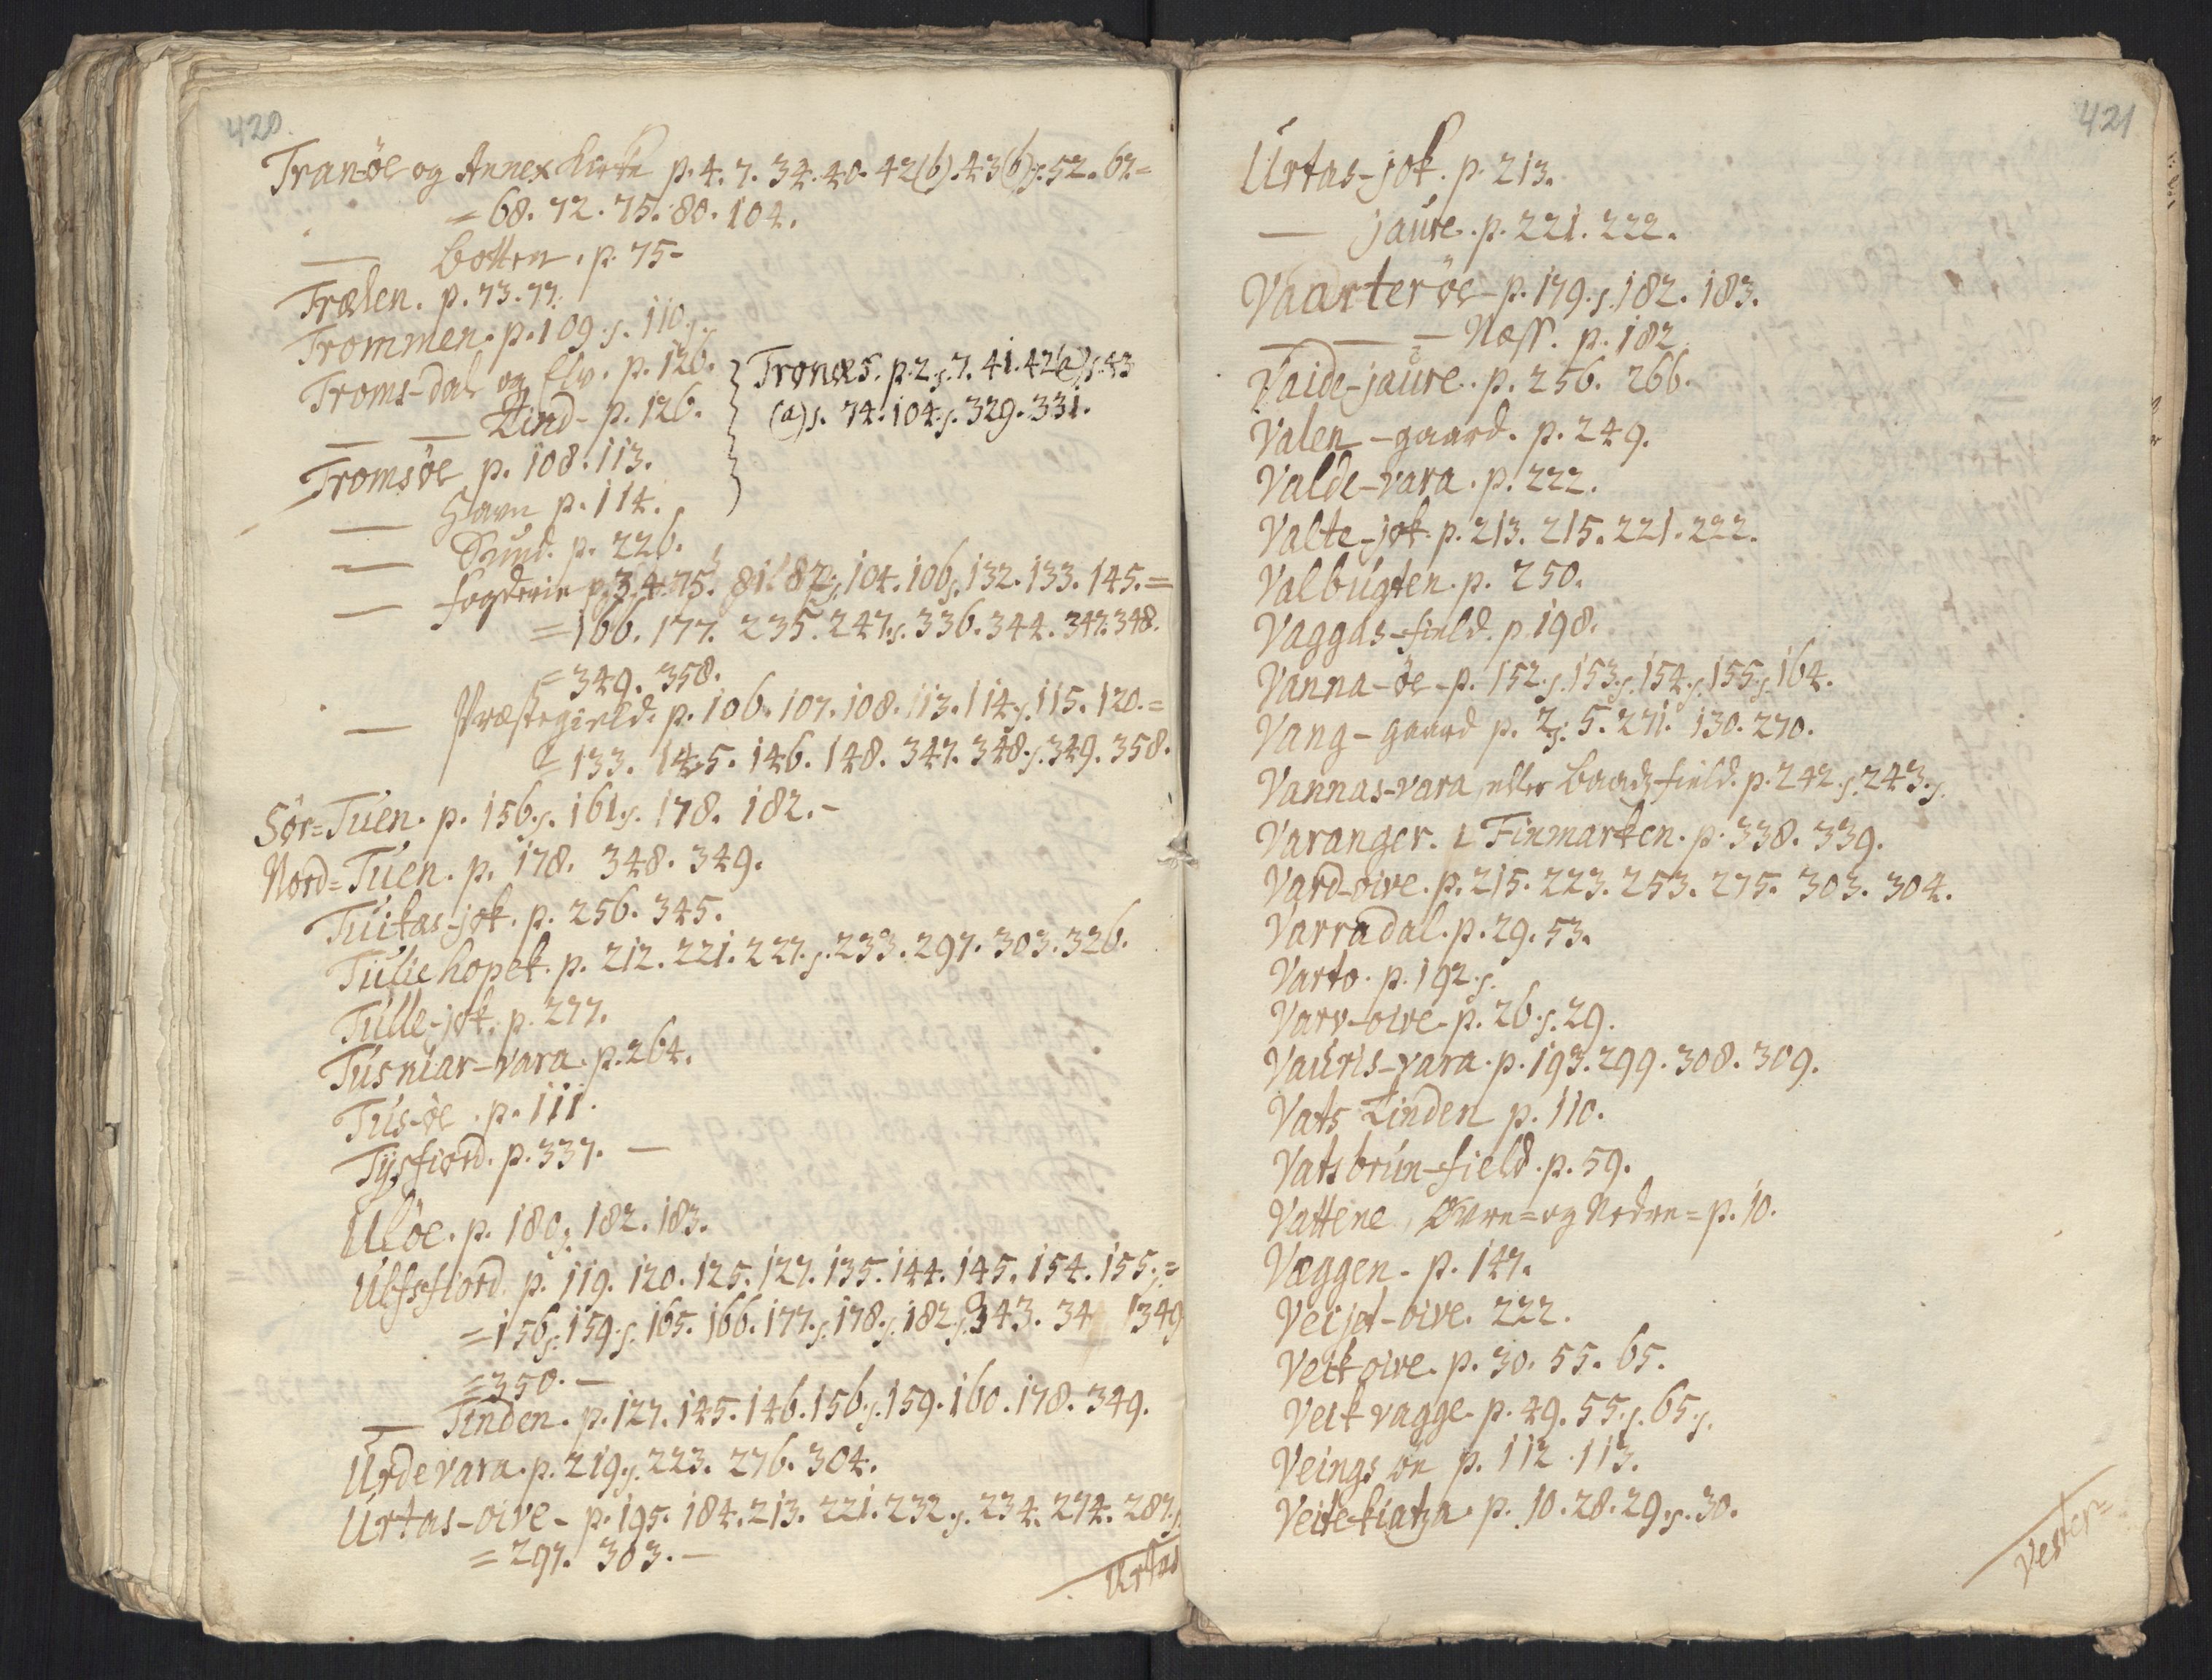 420.
Tranöe og Annex Kirke p. 4. 7. 34. 40. 42(b). 43(b)s. 52. 67.=
=68. 72. 75. 80. 104.
— botten. p. 75-
Trælen. p. 73. 77.
Trommen. p. 109.s. 110.s.
Troms-dal og Elv. p. 126.
— — Tind- p. 126.
Tronæs. p. 2.s. 7. 41. 42(a)s. 43
(a)s. 74. 104.s. 329. 331.
Tromsöe p. 108. 113.
— Havn p. 114.
— Sund. p. 226.
— fogderie p. 3. 4. 75. 81. 82.s. 104. 106.s. 132. 133. 145.=
=166. 177. 235. 247.s. 336. 344. 347. 348.
=349. 358.
— Præstegield. p. 106. 107. 108. 113. 114.s. 115. 120.=
=133. 145. 146. 148. 347. 348.s. 349. 358.
Sör=Tuen. p. 156.s. 161.s. 178. 182.-
Nord=Tuen. p. 178. 348. 349.
Tuikas-jok. p. 256. 345.
Tulie hopek. p. 212. 221. 227.s. 233. 297. 303. 326.
Tulle-jok. p. 277.
Tusniar-vara. p. 264.
Tus-öe. p. 111.
Tysfiord. p. 337. —
Ulöe. p. 180.s. 182. 183.
Ulfsfiord. p. 119. 120. 125. 127. 135. 144. 145. 154. 155.s.=
=156.s. 159.s. 165. 166. 177.s. 178.s. 182.s. 343. 34 349
=350.—
— Tinden. p. 127. 145. 146. 156.s. 159. 160. 178. 349.
Urdevara. p. 219.s. 223. 276. 304.
Urtas-oive- p. 195. 184. 213. 221. 232.s. 234. 274. 287.s.
=297. 303.—
Urtas
421
Urtas-jok. p. 213.
— jaure. p. 221. 222.
Vaarteröe- p. 179.s. 182. 183.
— — — Næss. p. 182.
Vaide-jaure. p. 256. 266.
Valen-gaard. p. 249.
Valde-vara. p. 222.
Valte-jok. p. 213. 215. 221. 222.
Valbugten. p. 250.
Vaggas-field. p. 198.
Vanna-öe- p. 152.s. 153.s. 154.s. 155.s. 164.
Vang-gaard p. 2.s. 5. 271. 130. 270.
Vannas-vara, eller Baadsfield. p. 242.s. 243.s.
Varanger. i Finmarken. p. 338. 339.
Vard-oive. p. 215. 223. 253. 275. 303. 304.
Varradal. p. 29. 53.
Varto. p. 192.s.
Varv-oive- p. 26.s. 29.
Vauris-vara. p. 193. 299. 308. 309.
Vats Tinden p. 110.
Vatsbrun-field. p. 59.
Vattene, Øvre= og Nedre= p. 10.
Væggen. p. 147.
Veijet-oive. 222.
Veikoive. p. 30. 55. 65.
Veik vagge. p. 49. 55.s. 65.s.
Veings öe p. 112. 113.
Veite-kiatza. p. 10. 28. 29.s. 30.
Vester=